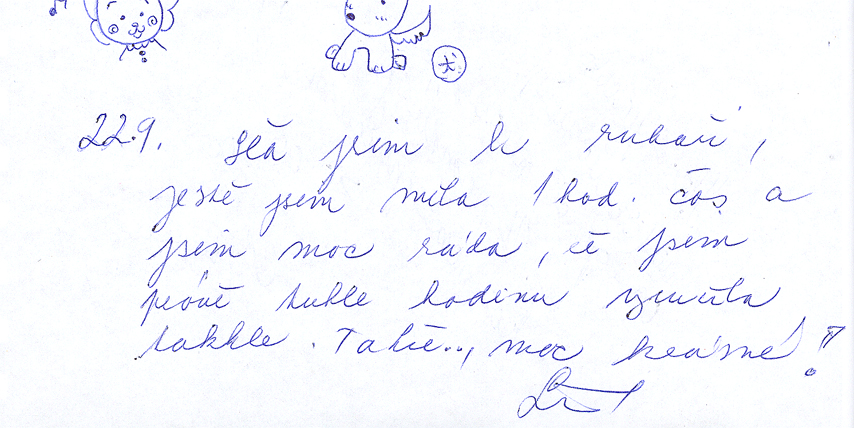 犬
22.9. Šla jsem k zubaři,
ještě jsem měla 1 hod. čas a
jsem moc ráda, že jsem
právě tuhle hodinu využila
takhle. Takže.., moc krásné!